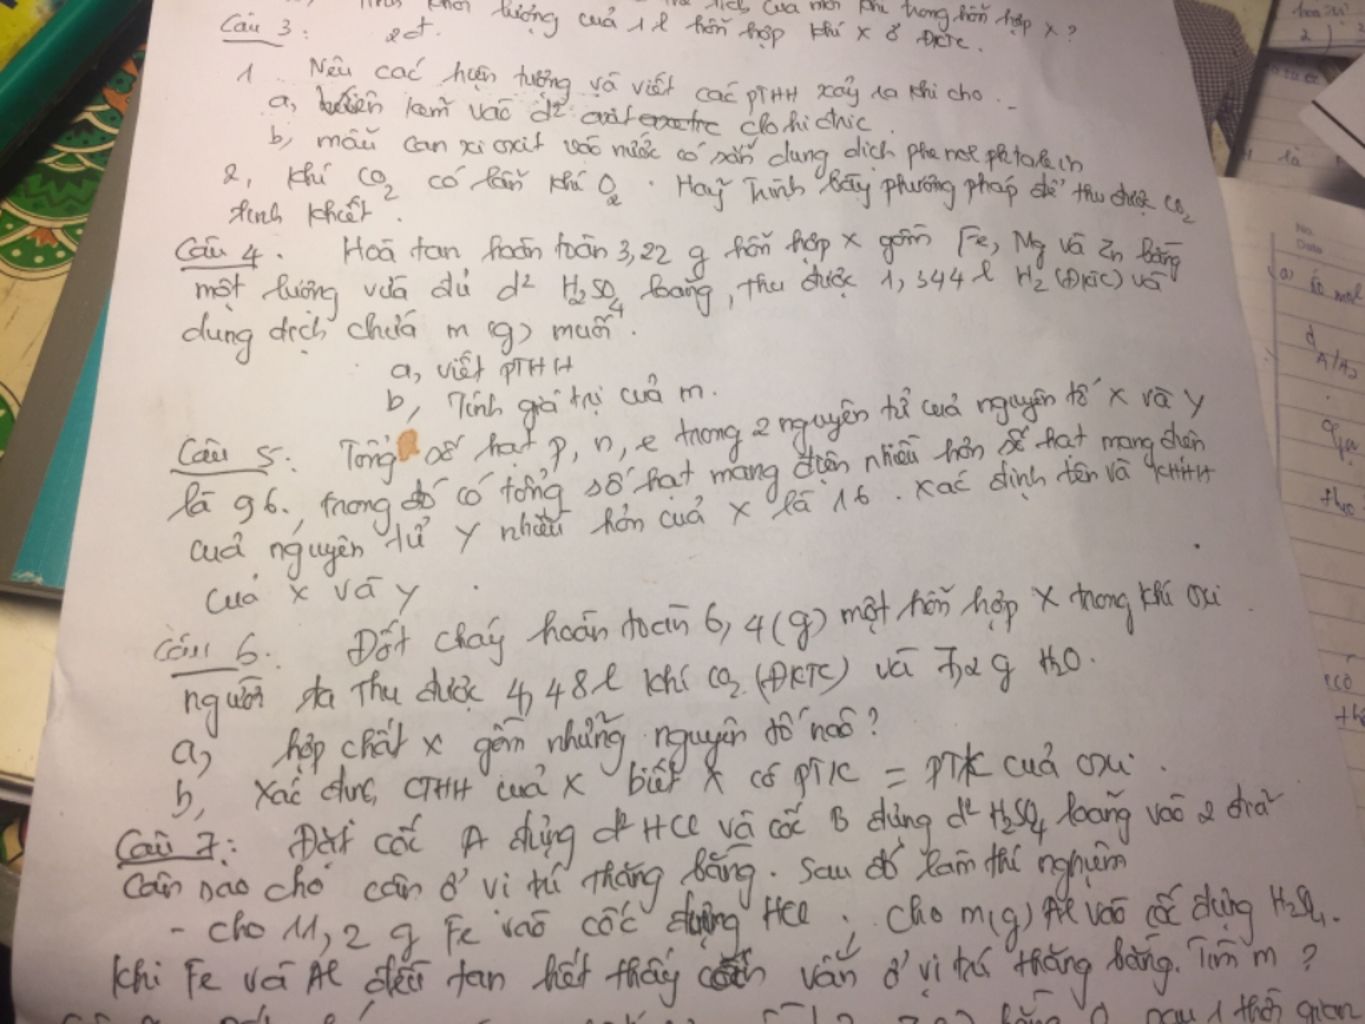 lượng của 1 l hỗn hợp khí X ở ĐKTC.
Câu 3: 2đ.
1 Nêu các hiện tượng và viết các PTHH xảy ra khi cho.
a, kẽm vào d² axit clohiđric.
b, mẩu canxi oxit vào nước có sẵn dung dịch phenolphtalein
2, Khí CO2 có lẫn khí O2. Hãy trình bày phương pháp để thu được CO2
tinh khiết.
Câu 4. Hoà tan hoàn toàn 3,22 g hỗn hợp X gồm Fe, Mg và Zn bằng
một lượng vừa đủ d² H2SO4 loãng, thu được 1,344 l H2 (ĐKTC) và
dung dịch chứa m (g) muối.
a, viết PTHH
b, Tính giá trị của m.
Câu 5: Tổng số hạt p, n, e trong 2 nguyên tử của nguyên tố X và Y
là 96, trong đó có tổng số hạt mang điện nhiều hơn số hạt mang điện
của nguyên tử Y nhiều hơn của X là 16. Xác định tên và KHHH
của X và Y.
Câu 6: Đốt cháy hoàn toàn 6,4 (g) một hỗn hợp X trong khí oxi
người ta thu được 4,48 l khí CO2 (ĐKTC) và 7,2 g H2O.
a, hợp chất X gồm những nguyên tố nào?
b, Xác định CTHH của X biết X có PTK = PTK của oxi.
Câu 7: Đặt cốc A đựng d² HCl và cốc B đựng d² H2SO4 loãng vào 2 đĩa
cân sao cho cân ở vị trí thăng bằng. Sau đó làm thí nghiệm
- Cho 11,2 g Fe vào cốc đựng HCl. Cho m(g) Al vào cốc đựng H2SO4.
Khi Fe và Al đều tan hết thấy cân vẫn ở vị trí thăng bằng. Tìm m?
sau 1 thời gian